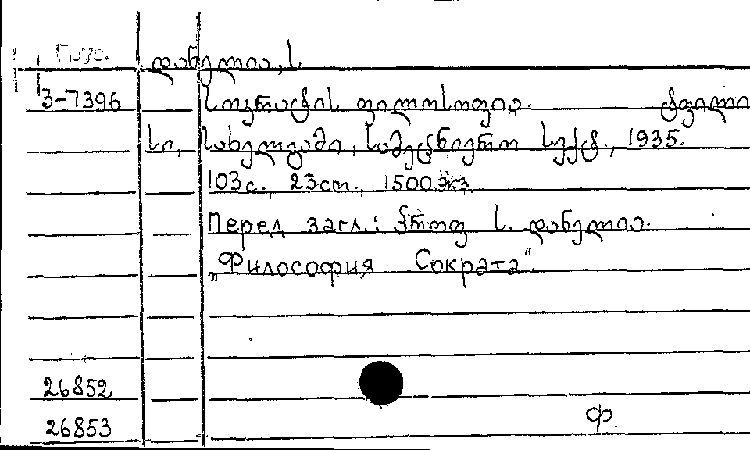 დანელია, ს.
3-7396 სოკრატეს ფილოსოფია.
სახელგამი, სამეცნიერო სექტ., 1935.
103с. 23см. 1500экз.
Перед загл.: პროფ ს. დანელია.
„Философия Сократа“.
26852
26853
Ф